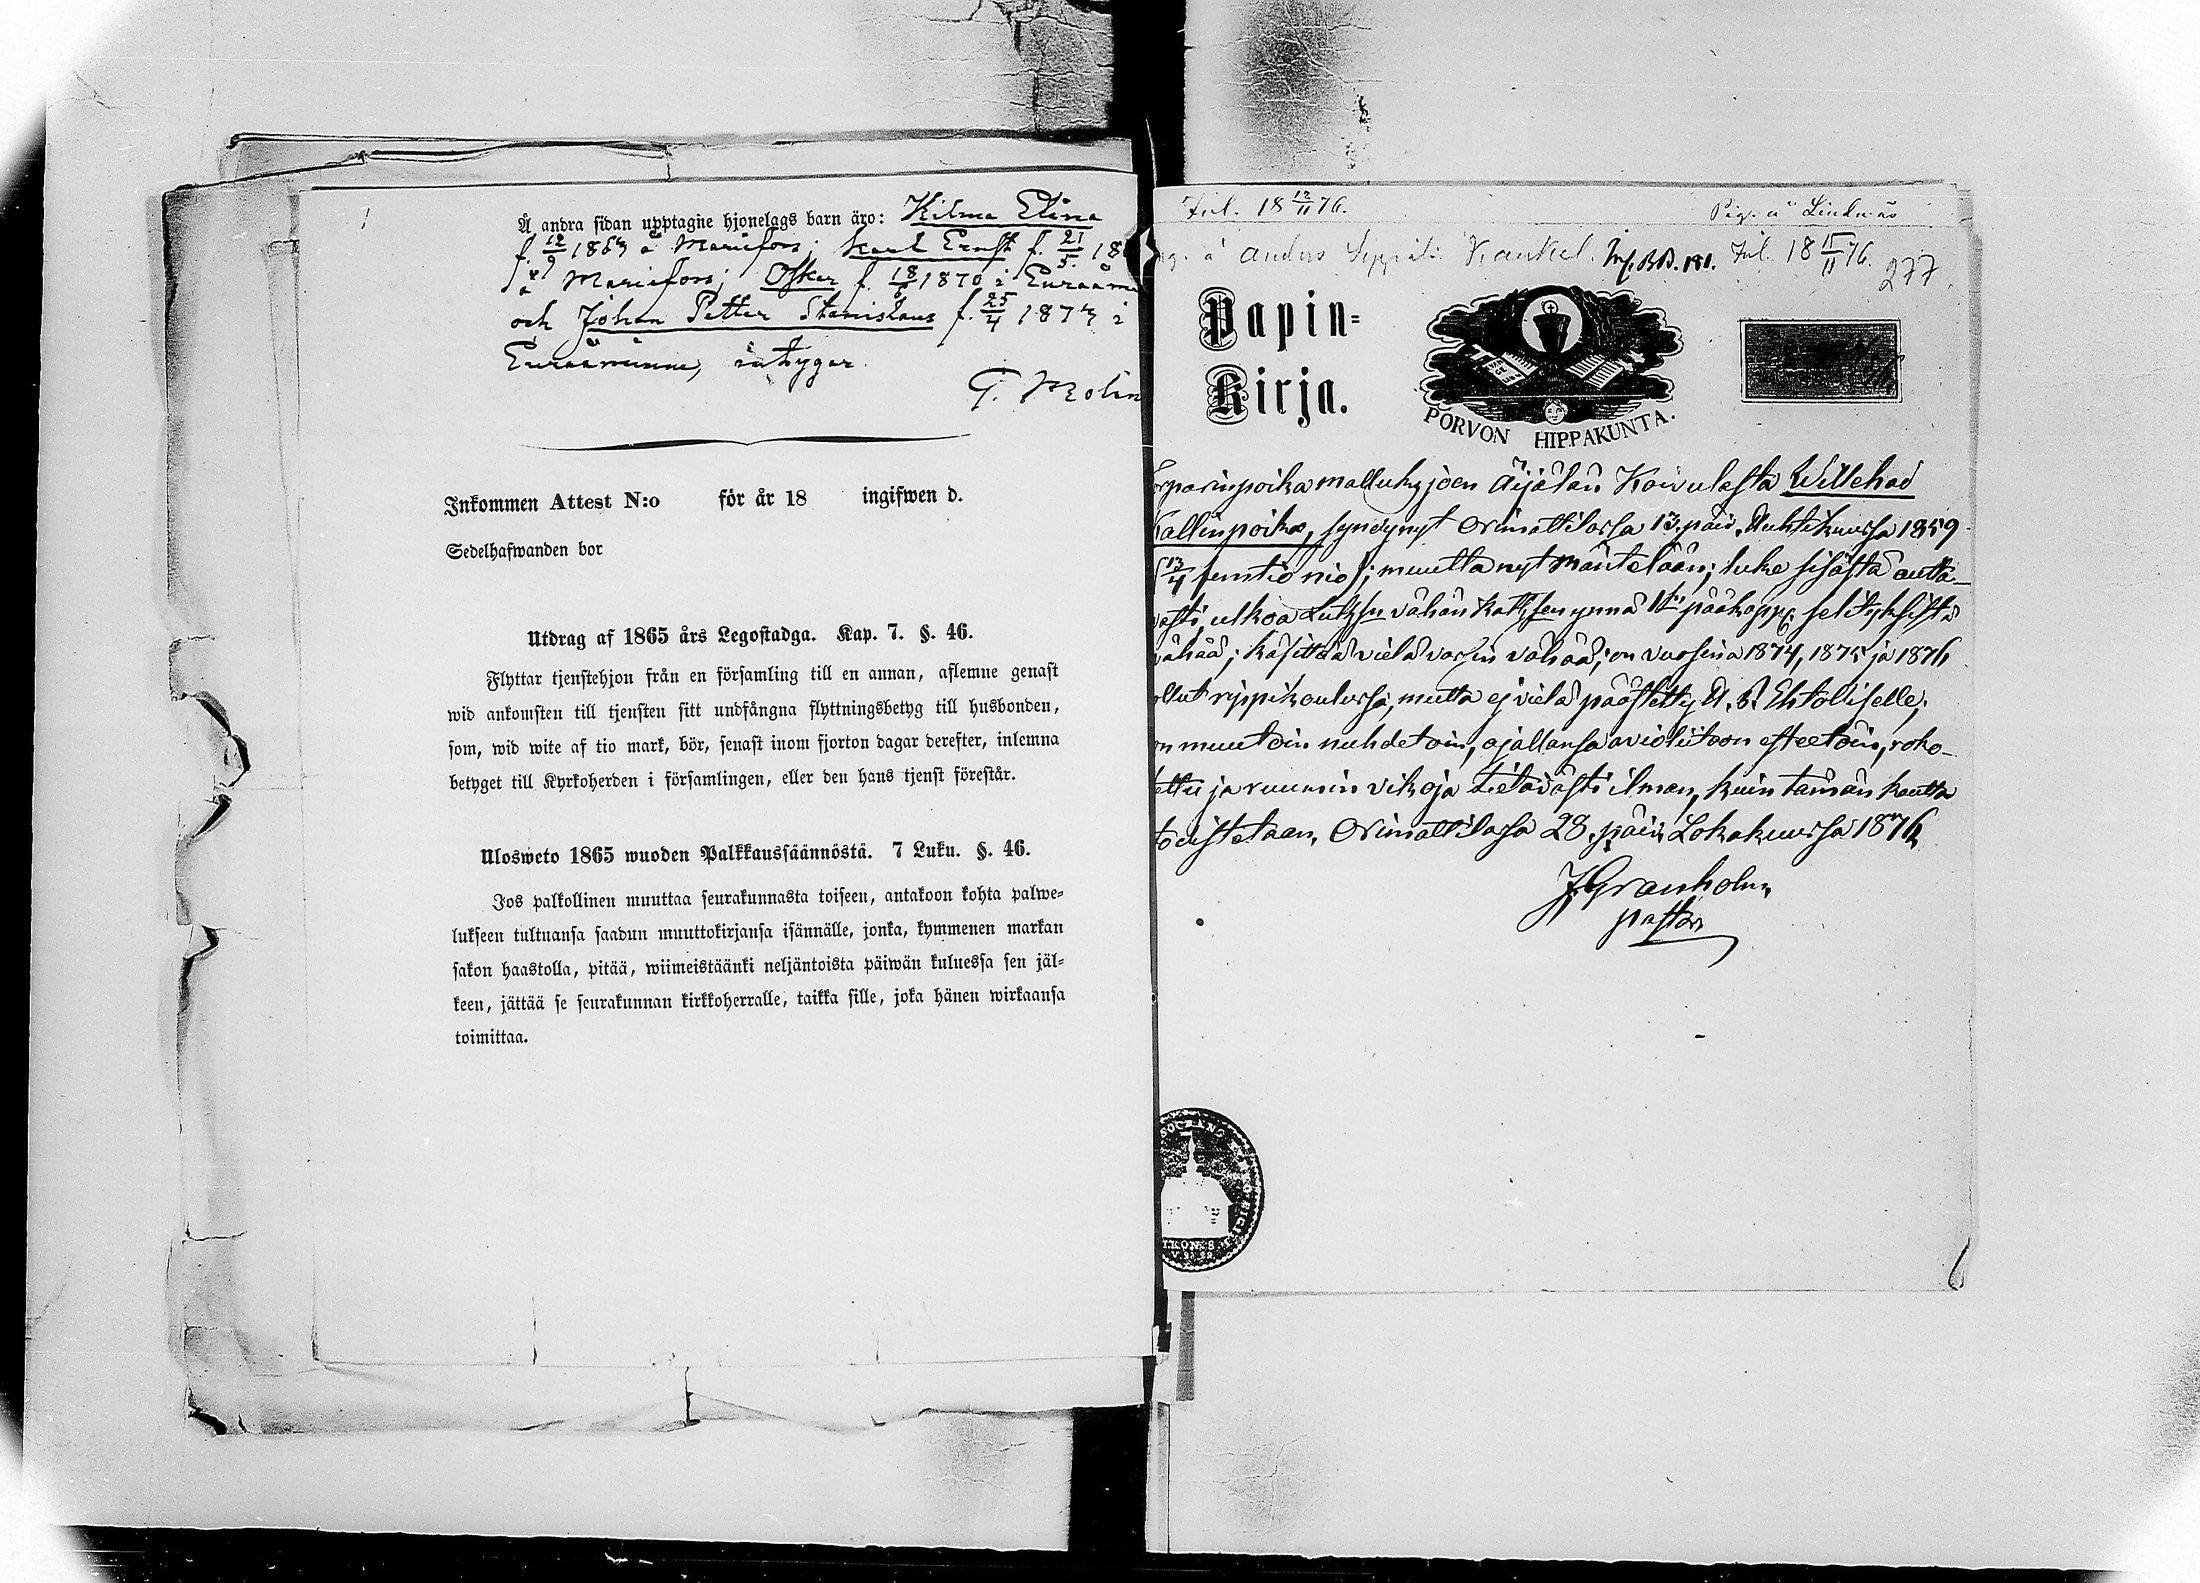 Å andra sidan upptagne hjonelags barn äro: Hilma Elina
f. 12/9 1867 å Mariefors; Karl Ernst f. 21/5 18
å Mariefors; Oskar f. 18/6 1870 i Euraåmi
och Johan Petter Stanislaus f. 25/4 1873 i
Euraaminne, intygar
G. Molin
Inkommen Attest N:o för år 18 ingifwen d.
Sedelhafwanden bor
Utdrag af 1865 års Legostadga. Kap. 7. §. 46.
Flyttar tjenstehjon från en församling till en annan, aflemne genast
wid ankomsten till tjensten sitt undfångna flyttningsbetyg till husbonden,
som, wid wite af tio mark, bör, senast inom fjorton dagar derefter, inlemna
betyget till Kyrkoherden i församlingen, eller den hans tjenst förestår.
Ulosweto 1865 wuoden Palkkaussäännöstä. 7 Luku. §. 46.
Jos palkollinen muuttaa seurakunnasta toiseen, antakoon kohta palwe-
lukseen tultuansa saadun muuttokirjansa isännälle, jonka, kymmenen markan
sakon haastolla, pitää, wiimeistäänki neljäntoista päiwän kuluessa sen jäl-
keen, jättää se seurakunnan kirkkoherralle, taikka sille, joka hänen wirkaansa
toimittaa.
Inl. 18 12/11 76.
Pig. å Lindnäs
å Anders Seppälä Kankel. Inf. B.B. 181. Inl. 18 15/11 76.
277
Papin-
Kirja.
PORVON HIPPAKUNTA.
Torparinpoika Mallusjoen Äijälän Koivulasta Willehad
Kallenpoika, syndynyt Orimattilassa 13. päiv. Huhtikuussa 1859
(13/4 femtio nio); muutta nyt Mäntelään; luke sisältä autta-
vasti, ulkoa Luth:sn vähän Katk:sen ynnä 1:n pääkapp. selityksistä
vähää; käsittää vielä varsin vähää; on vuosina 1874, 1875 ja 1876
ollut rippikoulussa, mutta ej vielä päästetty H. P. Ehtolliselle;
on muutoin nuhdetoin, ajallansa avioliitoon esteetöin, roko-
tettu ja ruumin vikoja tietävästi ilman, kuin tämän kautta
todistetaan. Orimattilassa 28. päiv. Lokakuussa 1876
J. Granholm
pastor